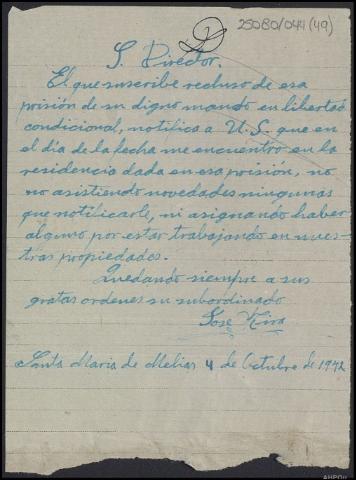 2
25080/044 (49)
S. Director.
El que suscribe recluso de esa
prisión de su digno mando en libertad
condicional, notifica a U.S. que en
el dia de la fecha me encuentro en la
residencia dada en esa prisión, no
no asistiendo novedades ningunas
que notificarle, ni asignando haber
alguno por estar trabajando en nues-
tras propiedades.
Quedando siempre a sus
gratas ordenes su subordinado
José
Santa Maria de Melias 4 de Octubre de 1942